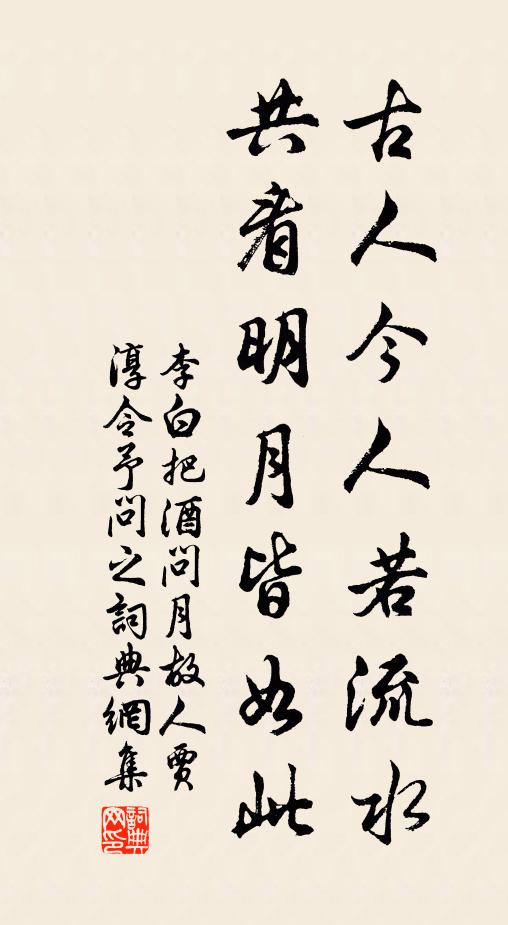 古人今人若流水
共看明月皆如此
李白把酒問月故人賈
淳令予問之詞典網集
詞典網印